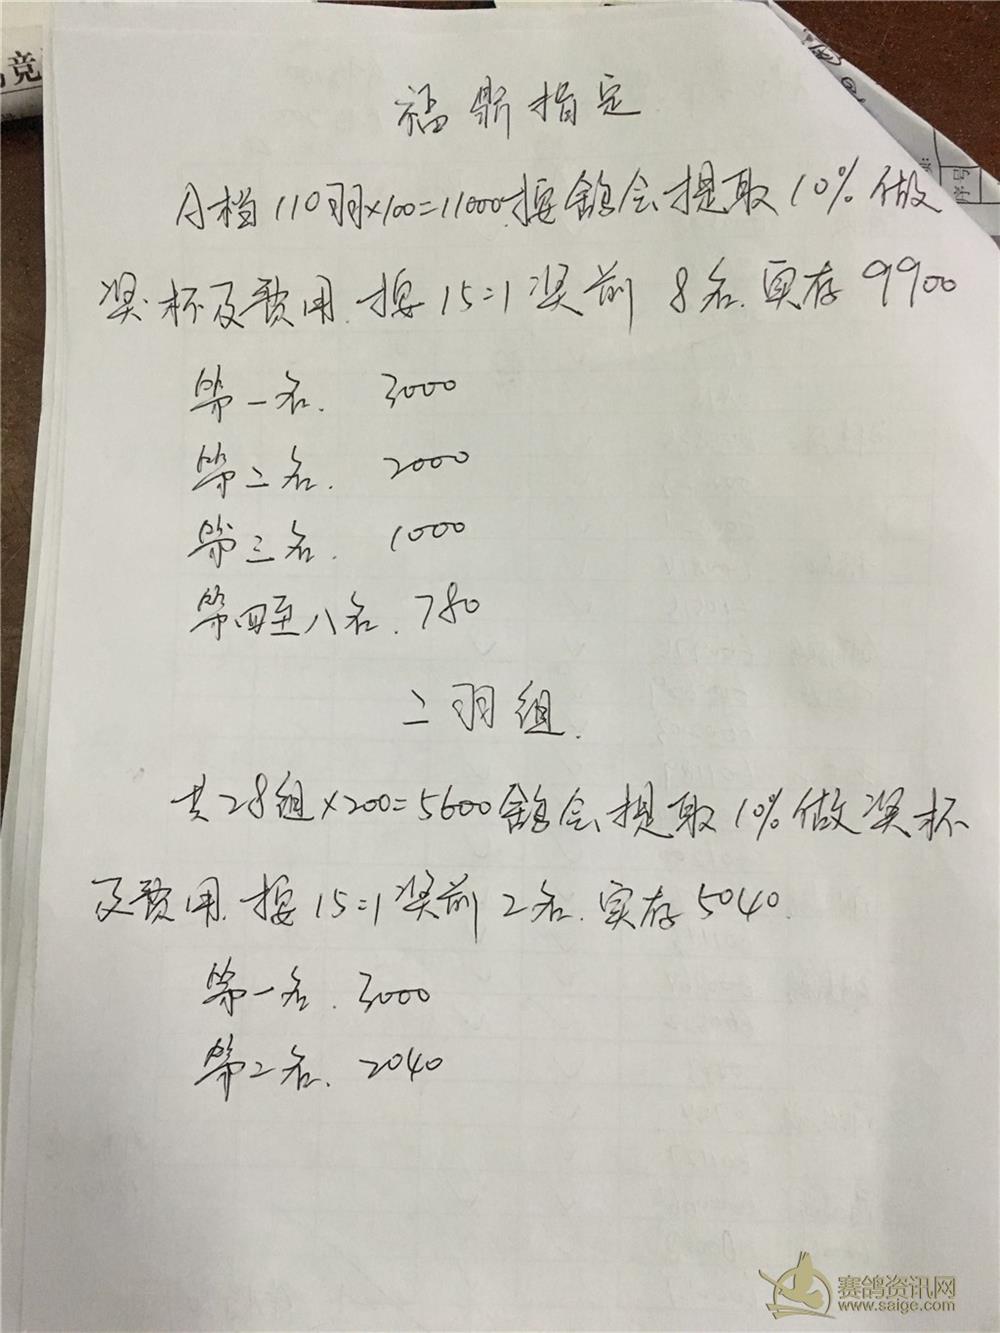 竞
福鼎指定
A档110羽×100=11000.按鸽会提取10%做
奖杯及费用.按15=1奖前8名.实存9900
第一名. 3000
第二名. 2000
第三名. 1000
第四至八名. 780
二羽组.
共28组×200=5600鸽会提取10%做奖杯
及费用.按15=1奖前2名.实存5040.
第一名. 3000
第二名. 2040
序号
赛鸽资讯网
www.saige.com